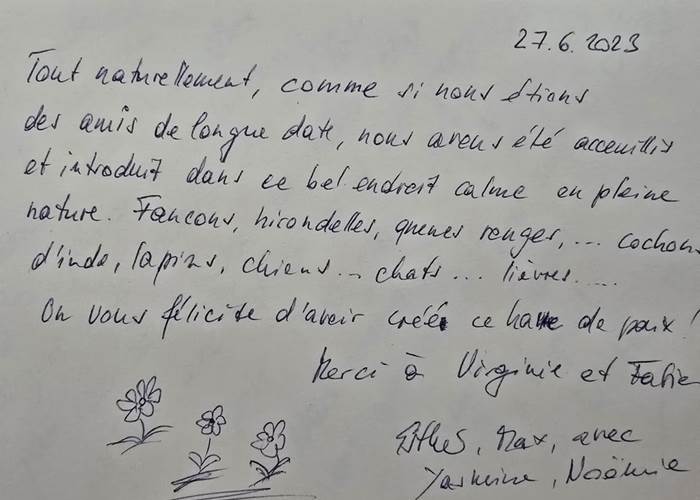 27.6.2023
Tout naturellement, comme si nous étions
des amis de longue date, nous avons été acceuillis
et introduit dans ce bel endroit calme en pleine
nature. Faucons, hirondelles, queues rouges, ... cochons
d'inde, lapins, chiens ... chats ... lièvres .....
On vous félicite d'avoir créé ce havre de paix !
Merci à Virginie et
Max, avec
Yasmine, Noémie